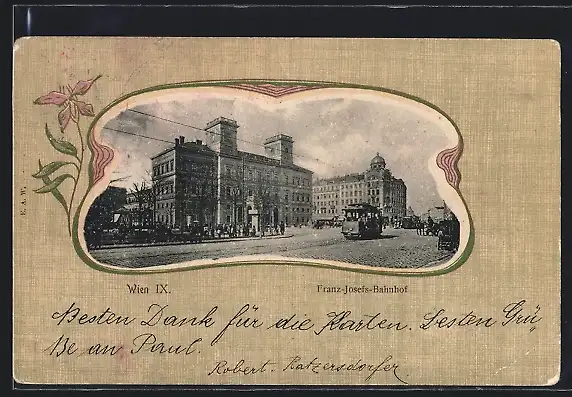 E. A. W.
Wien IX. Franz-Josefs-Bahnhof
Besten Dank für die Karten. Besten Grü
ße an Paul.
Robert. Hatzersdorfer